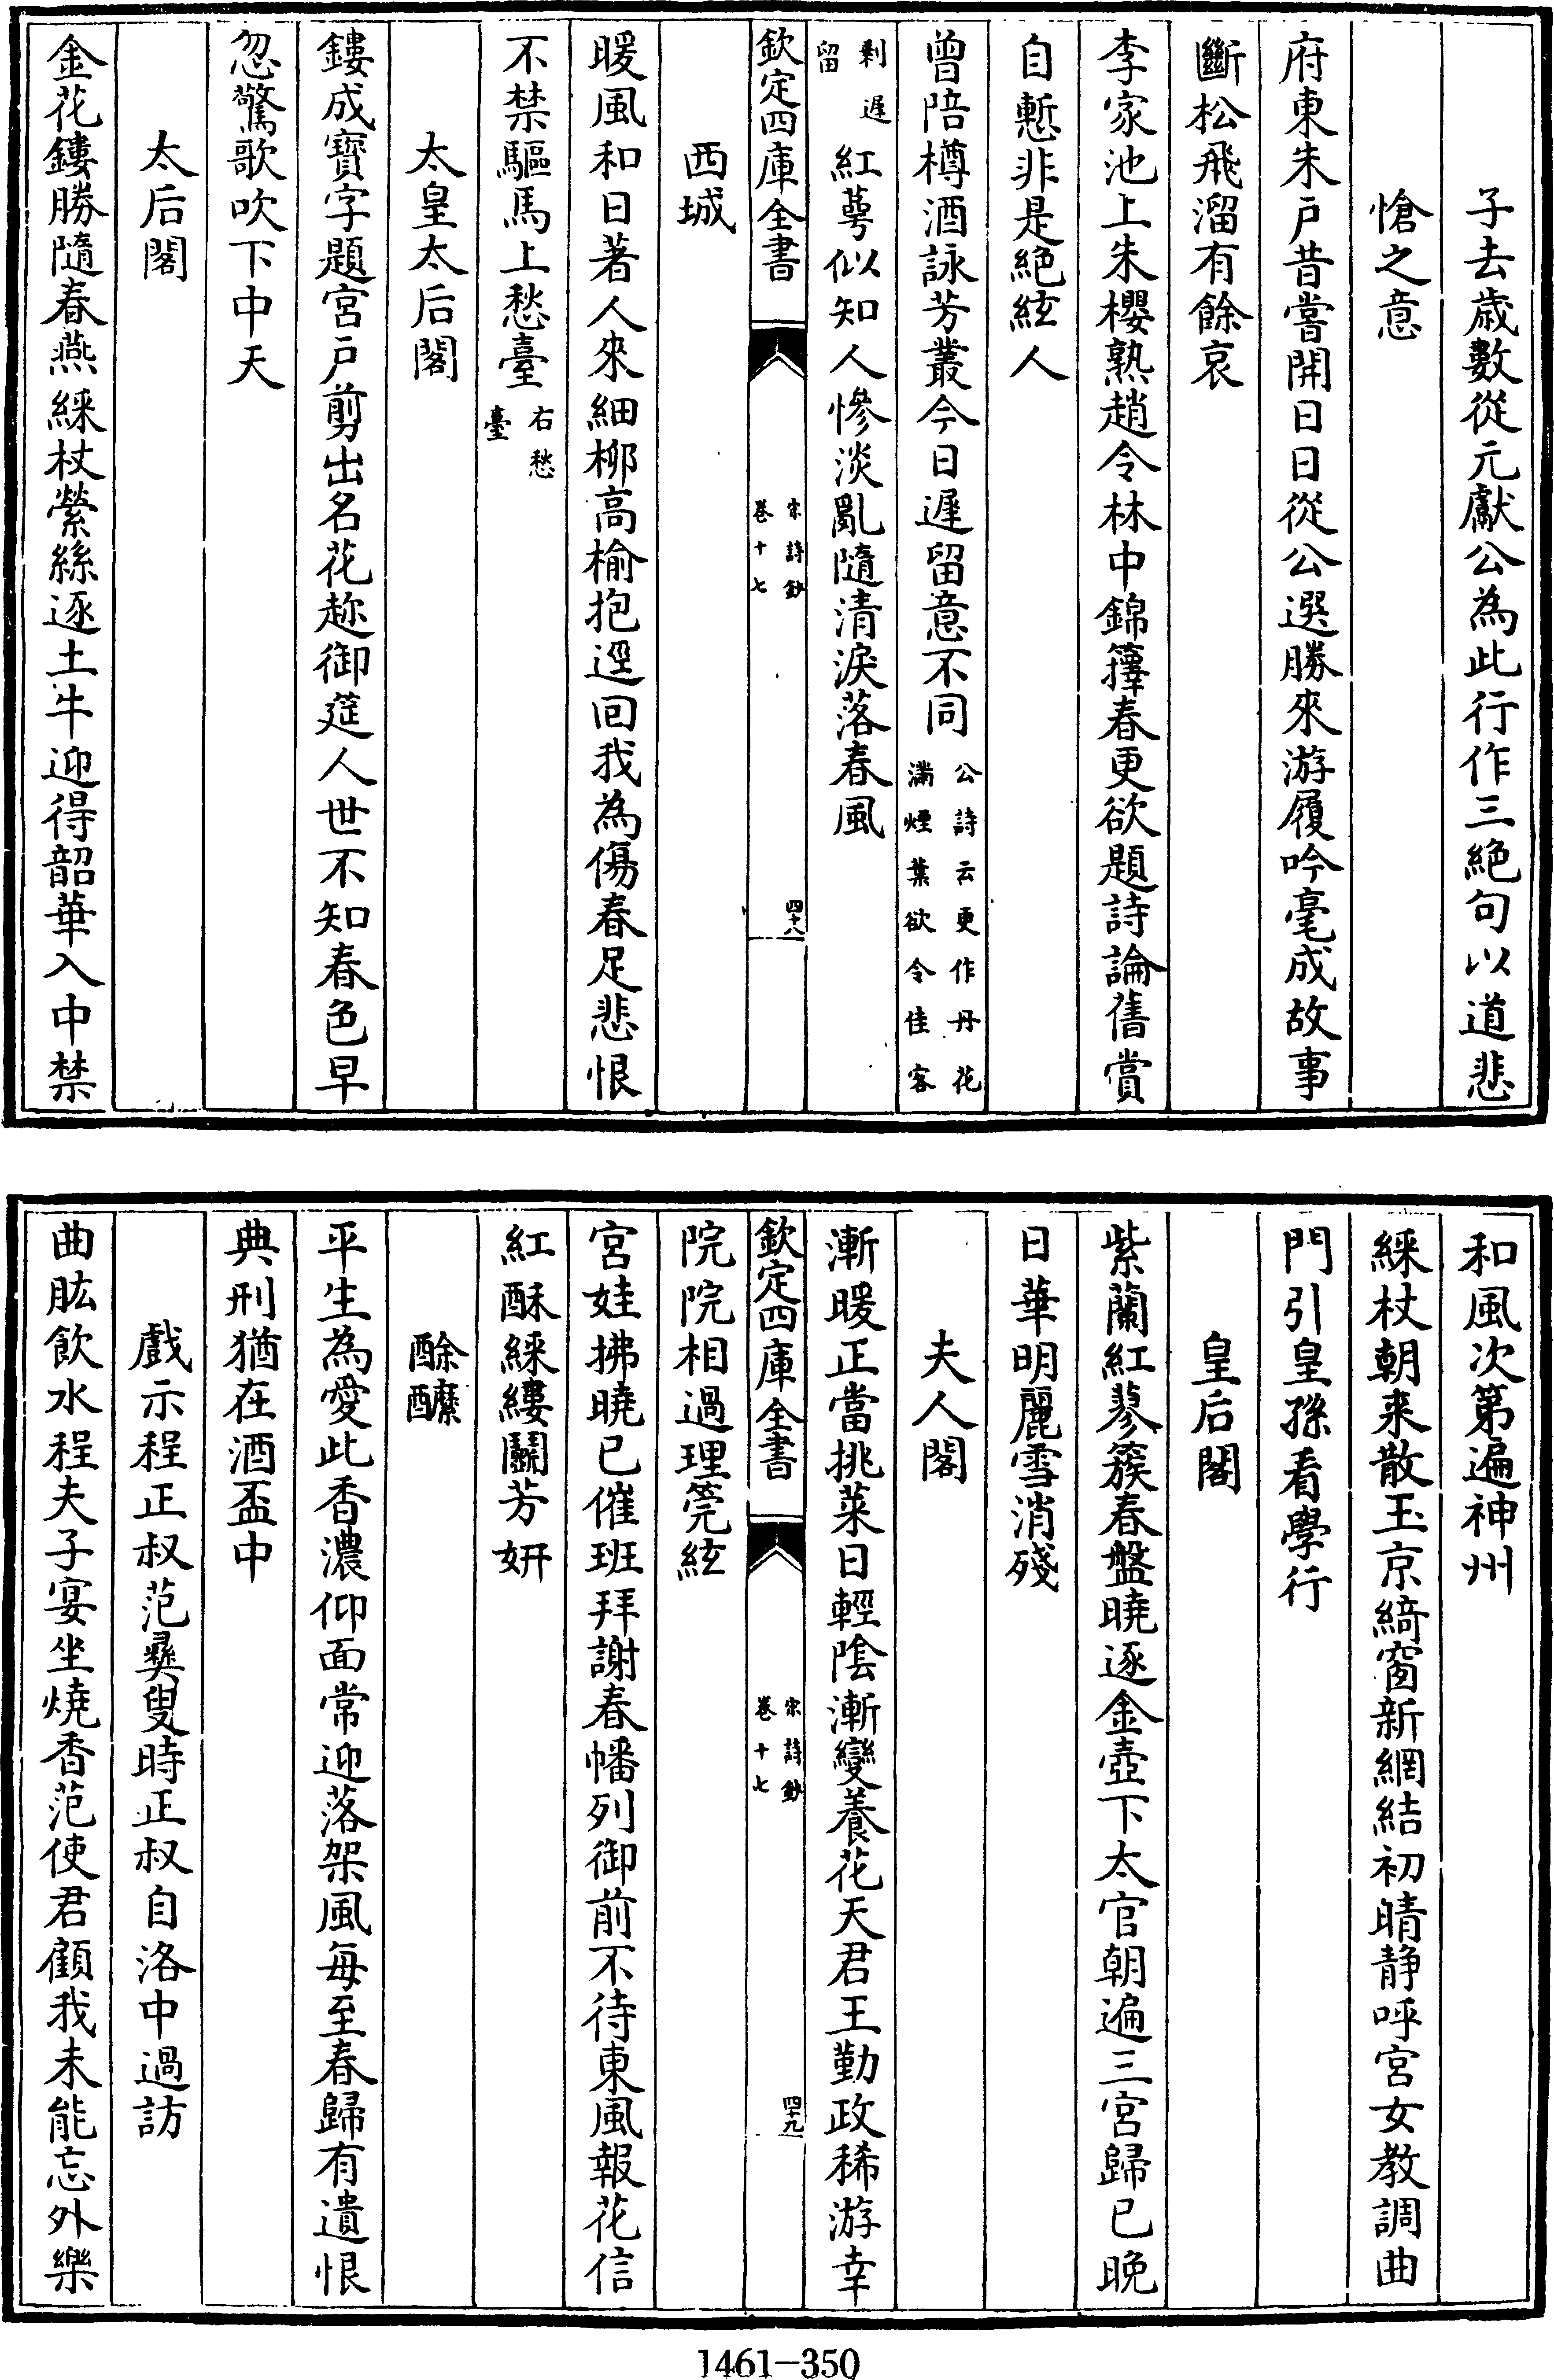 子去歳數從元獻公為此行作三絶句以道悲
愴之意
府東朱戸昔嘗開日日從公選勝來游履吟毫成故事
斷松飛溜有餘哀
李家池上朱櫻熟趙令林中錦籜春更欲題詩論舊賞
自慙非是絶絃人
曾陪樽酒詠芳叢今日遲留意不同
公詩云更作丹花
滿煙葉欲令佳客
剩遲
留
紅萼似知人慘淡亂隨清淚落春風
欽定四庫全書
宋詩鈔
卷十七
四十八
西城
暖風和日著人來細柳高榆抱逕回我為傷春足悲恨
不禁驅馬上愁臺
右愁
臺
太皇太后閣
鏤成寳字題宮戸剪出名花趂御筵人世不知春色早
忽驚歌吹下中天
太后閣
金花鏤勝隨春燕綵杖縈絲逐土牛迎得韶華入中禁
和風次第遍神州
綵杖朝来散玉京綺窗新網結初晴静呼宮女教調曲
門引皇孫看學行
皇后閣
紫蘭紅蓼簇春盤曉逐金壺下太官朝遍三宮歸已晚
日華明麗雪消殘
夫人閣
漸暖正當挑菜日輕陰漸變養花天君王勤政稀游幸
欽定四庫全書
宋詩鈔
卷十七
四十九
院院相過理筦絃
宮娃拂曉已催班拜謝春幡列御前不待東風報花信
紅酥綵縷鬬芳妍
酴醾
平生為愛此香濃仰面常迎落架風每至春歸有遺恨
典刑猶在酒盃中
戲示程正叔范彝叟時正叔自洛中過訪
曲肱飲水程夫子宴坐燒香范使君顧我未能忘外樂
1461-350